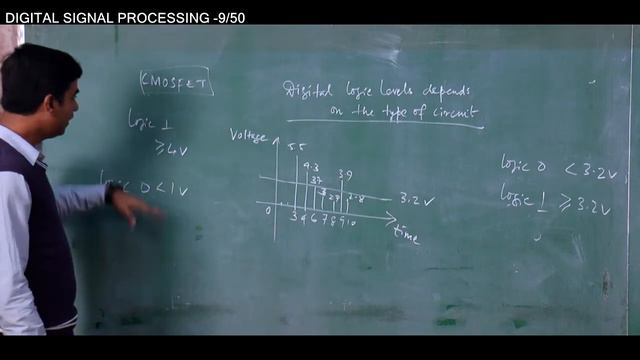 DIGITAL SIGNAL PROCESSING -9/50
CMOSFET
Digital logic levels depends
on the type of circuit
logic 1
≥4V
logic 0 <1V
Voltage
5.5
4.3
3.9
3.7
3
2.9
2.8
3.2V
0
3 4 6 7 8 9 10
time
logic 0 <3.2V
logic 1 ≥3.2V